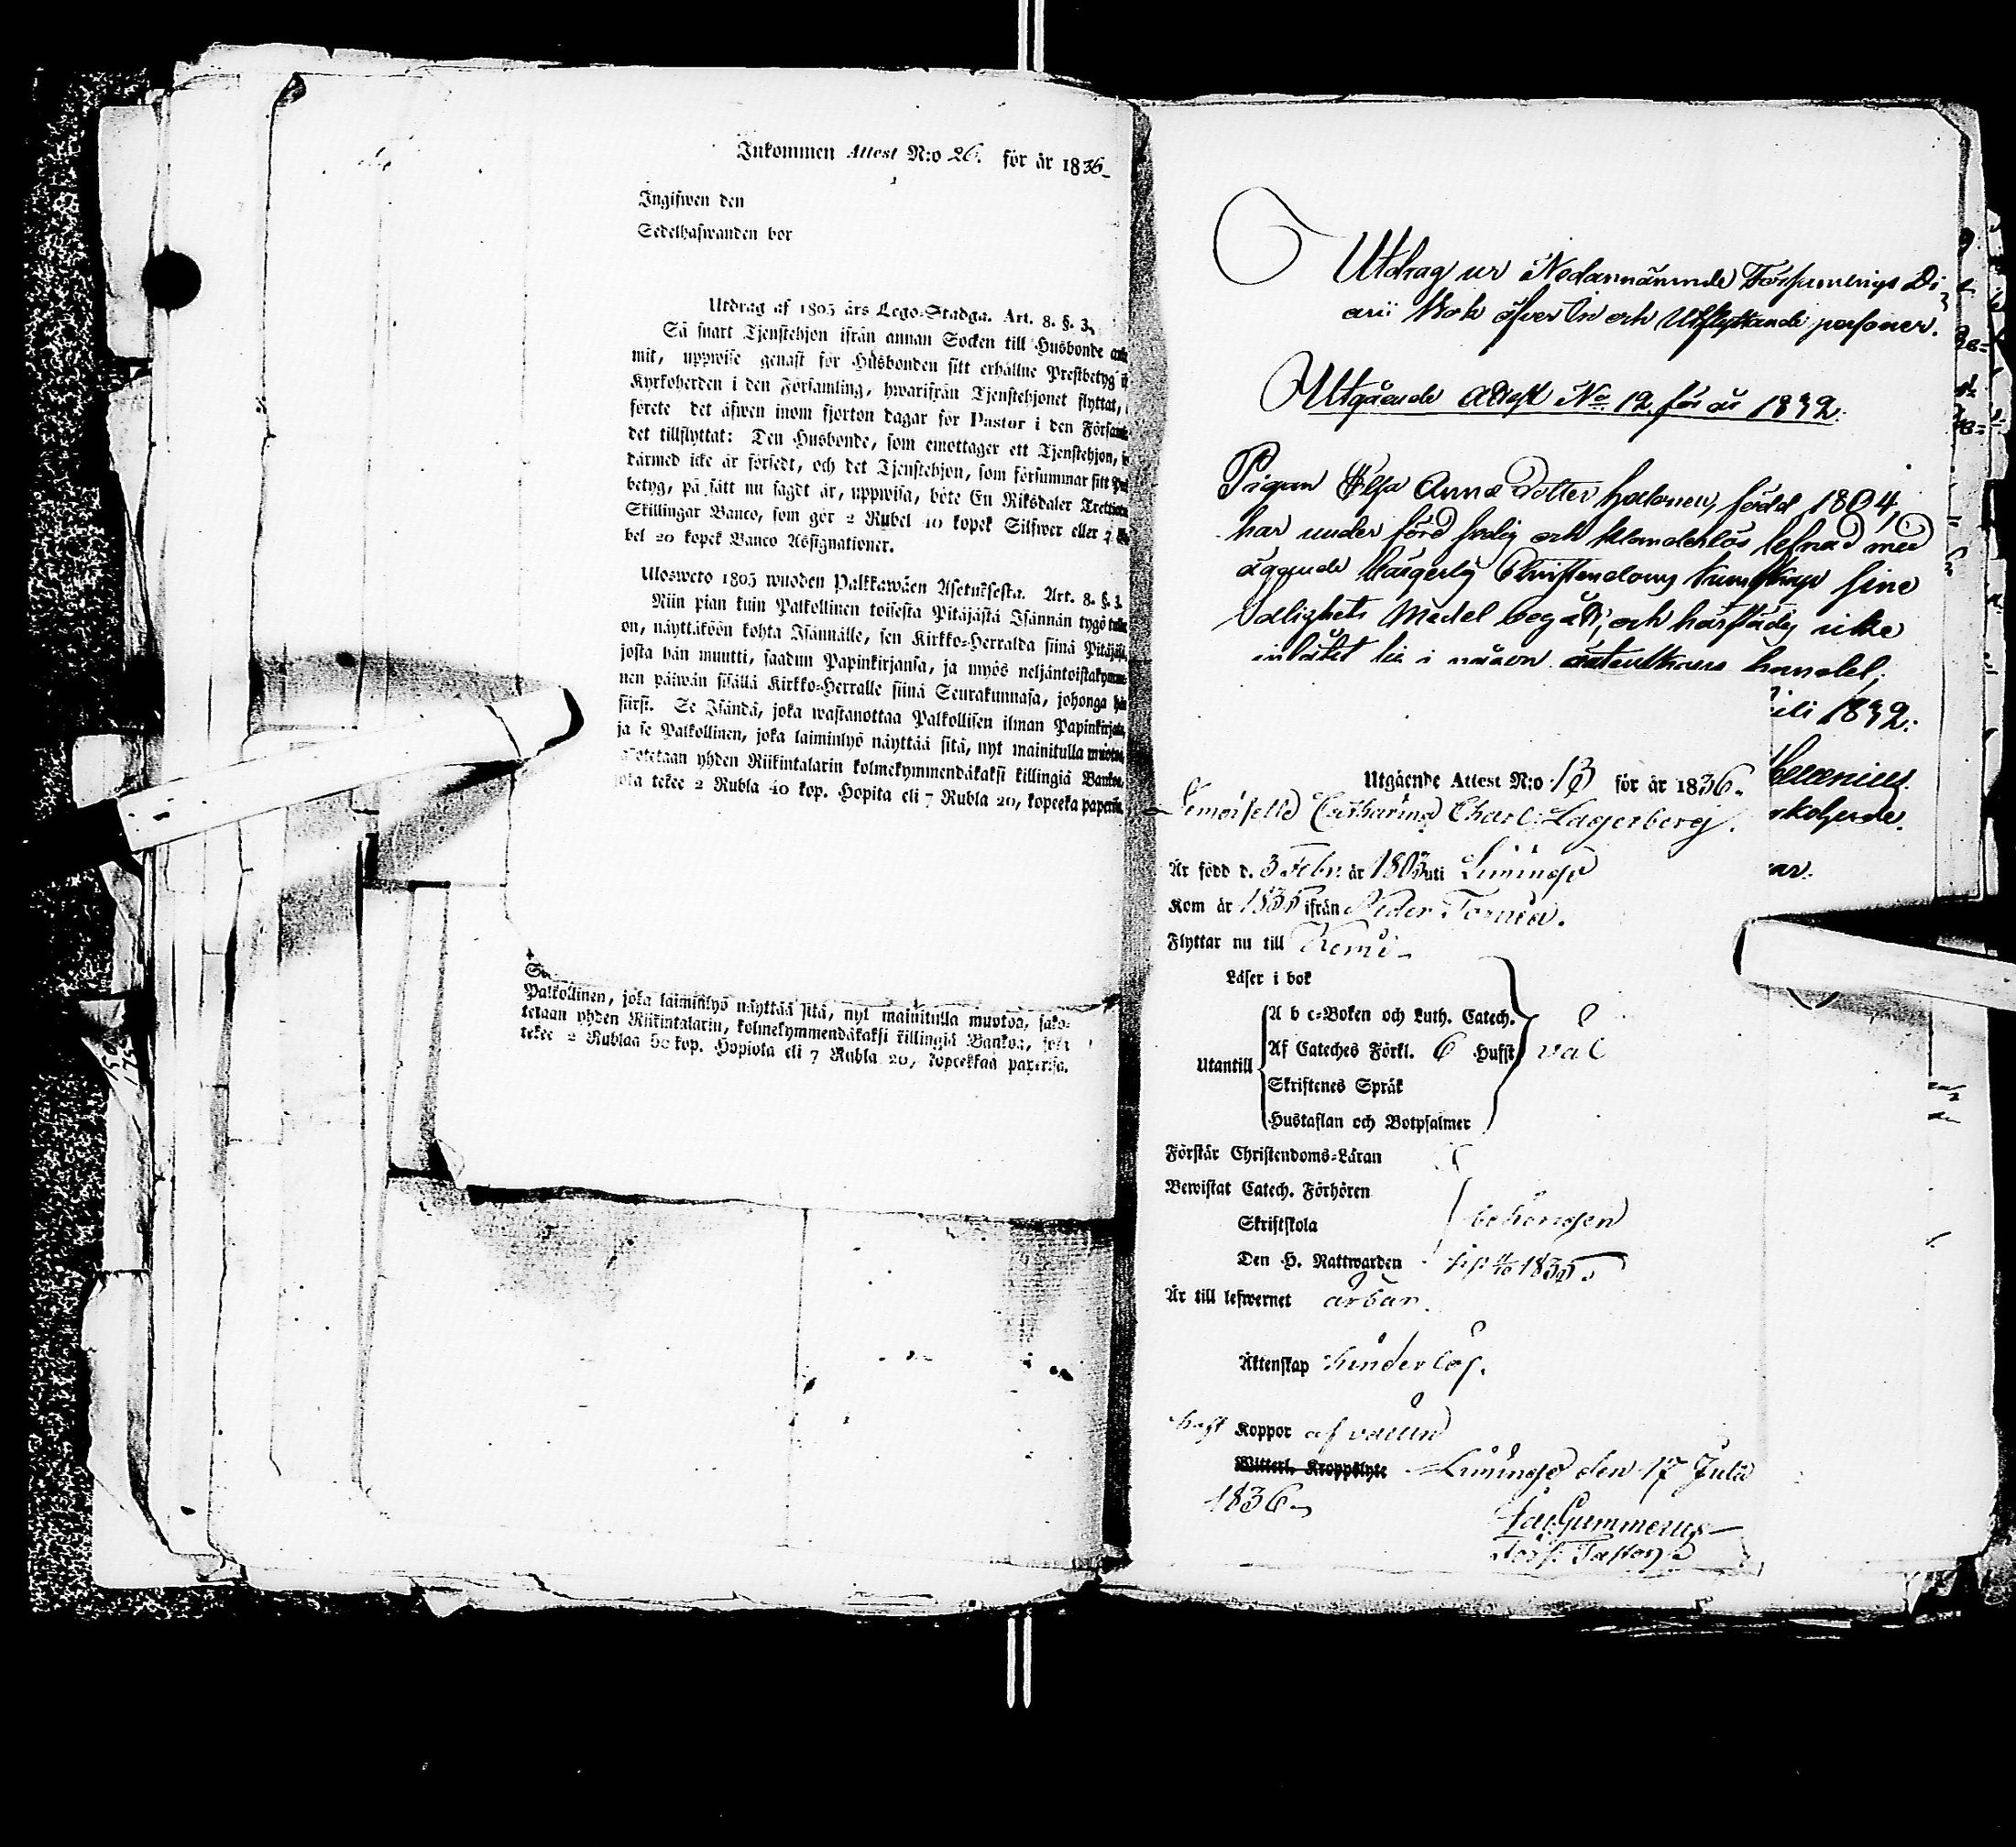 Inkommen Attest N:o 26. för år 1836
Ingifwen den
Sedelhafwanden bor
Utdrag af 1805 års Lego-Stadga. Art. 8. §. 3.
Så snart Tjenstehjon ifrån annan Socken till Husbonde
mit, uppwise genast för Husbonden sitt erhållne Prestbetyg
Kyrkoherden i den Församling, hwarifrån Tjenstehjonet flyttat,
förete det äfwen inom fjorton dagar för Pastor i den
det tillflyttat: Den Husbonde, som emottager ett Tjenstehjon,
därmed icke är försedt, och det Tjenstehjon, som försummar sitt
betyg, på sätt nu sagdt är, uppwisa, böte En Riksdaler
Skillingar Banco, som gör 2 Rubel 40 kopek Silfwer eller 7
bel 20 kopek Banco Assignationer.
Ulosweto 1805 wuoden Palkkawäen Asetuksesta. Art. 8. §. 3.
Niin pian kuin Palkollinen toisesta Pitäjästä Isännän tygö
on, näyttäköön kohta Isännälle, sen Kirkko-Herralda siinä
josta hän muutti, saadun Papinkirjansa, ja myös
nen päiwän sisällä Kirkko-Herralle siinä Seurakunnasa, johonga
siirsi. Se Isändä, joka wastanottaa Palkollisen ilman
ja se Palkollinen, joka laiminlyö näyttää sitä, nyt mainitulla
yhden Riikintalarin kolmekymmendäkaksi killingiä
tekee 2 Rubla 40 kop. Hopita eli 7 Rubla 20, kopeeka
Palkollinen, joka laiminlyö näyttää sitä, nyt mainitulla muotoa, sako-
tetaan yhden Riikintalarin, kolmekymmendäkaksi killingiä Bankoa, joka
tekee 2 Rublaa kop. Hopiota eli 7 Rubla 20, kopeekkaa paperisa.
Utdrag ur Nedannämnde Församlings Di
arii Bok öfver In och Utflyttande personer.
Utgående Attest No. 12 för år 1832.
Pigan Elsa Anna dotter Halonen, född 1804,
har under förd fredig och klanderlös lefnad med
ägande Christendoms kunskap sine
Salighets Medel begått, och härstädes icke
inlåtit sig i någon ägtenskaps handel,
ili 1832.
Utgående Attest N:o 13 för år 1836.
Demoiselle Catharina Charl. Lagerberg.
Är född d. 3 Febr. år 1803 uti Limingo
Kom år 1835 ifrån Neder Torneå.
Flyttar nu till Kemi
Läser i bok
A b c-Boken och Luth. Catech.
Utantill Af Cateches Förkl. 6 Hufst. väl
Skriftenes Språk
Hustaflan och Botpsalmer
Förstår Christendoms-Läran
Bewistat Catech. Förhören
Skriftskola behörigen
Den H. Nattwarden 1835
Är till lefwernet ärbar.
Äktenskap hinderlös.
haft Koppor af vaccin
Witterl. Kroppslyte Limingo den 17 Julii
1836
Gummerus